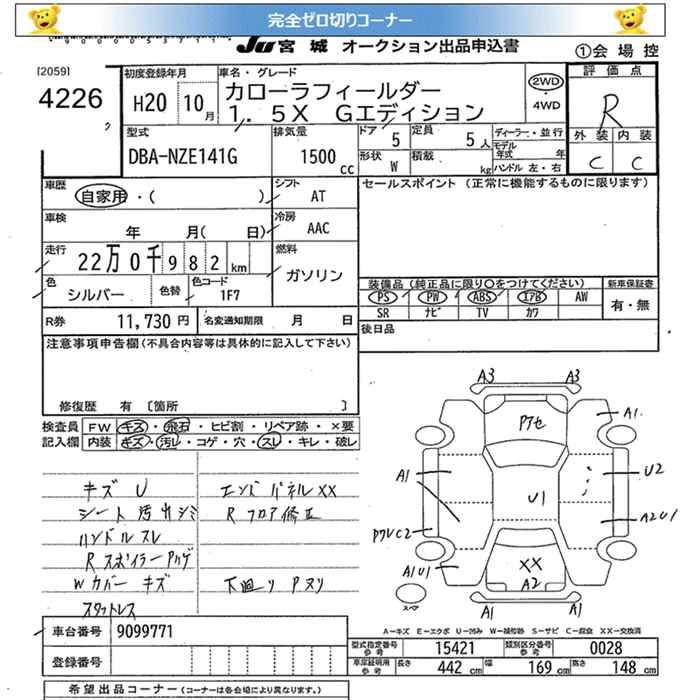 完全ゼロ切りコーナー
JU 宮城 オークション出品申込書
①会場控
[2059]
4226
初度登録年月
H20 10月
車名・グレード
カローラフィールダー
1.5X Gエディション
2WD
・
4WD
評価点
R
外装 内装
C C
型式
DBA-NZE141G
排気量
1500cc
ドア 5
定員 5人
形状 W
積載 kg
ディーラー・並行
モデル年式 年
ハンドル 左・右
車歴
自家用・( )
シフト AT
車検
年 月( 日)
冷房 AAC
走行
22万0千982km
燃料
ガソリン
色 シルバー
色替
色コード 1F7
R券 11,730円
名変通知期限 月 日
セールスポイント(正常に機能するものに限ります)
装備品(純正品に限り○をつけてください)
PS PW ABS エアB AW
SR ナビ TV カワ
新車保証書
有・無
後日品
注意事項申告欄(不具合内容等は具体的に記入して下さい)
修復歴 有 [箇所 ]
検査員記入欄
FW キズ・飛石・ヒビ割・リペア跡・×要
内装 キズ・汚れ・コゲ・穴・スレ・キレ・破レ
キズ U
シート汚レシミ
ハンドルスレ
Rスポイラーハゲ
Wカバーキズ
スタットレス
エンドパネルXX
Rフロア修正
下廻り Pヌリ
A3 A3
アクセ
A1
A1
U2
U1
A2U1
アクVC2
A1U1
XX
A2
A1 A1
スペア
A―キズ E―エクボ U―凹み W―補修跡 S―サビ C―腐食 XX―交換済
車台番号 9099771
登録番号
型式指定番号参考 15421
類別区分番号参考 0028
車庫証明用参考
長さ 442cm
幅 169cm
高さ 148cm
希望出品コーナー(コーナーは各会場により異なります。)